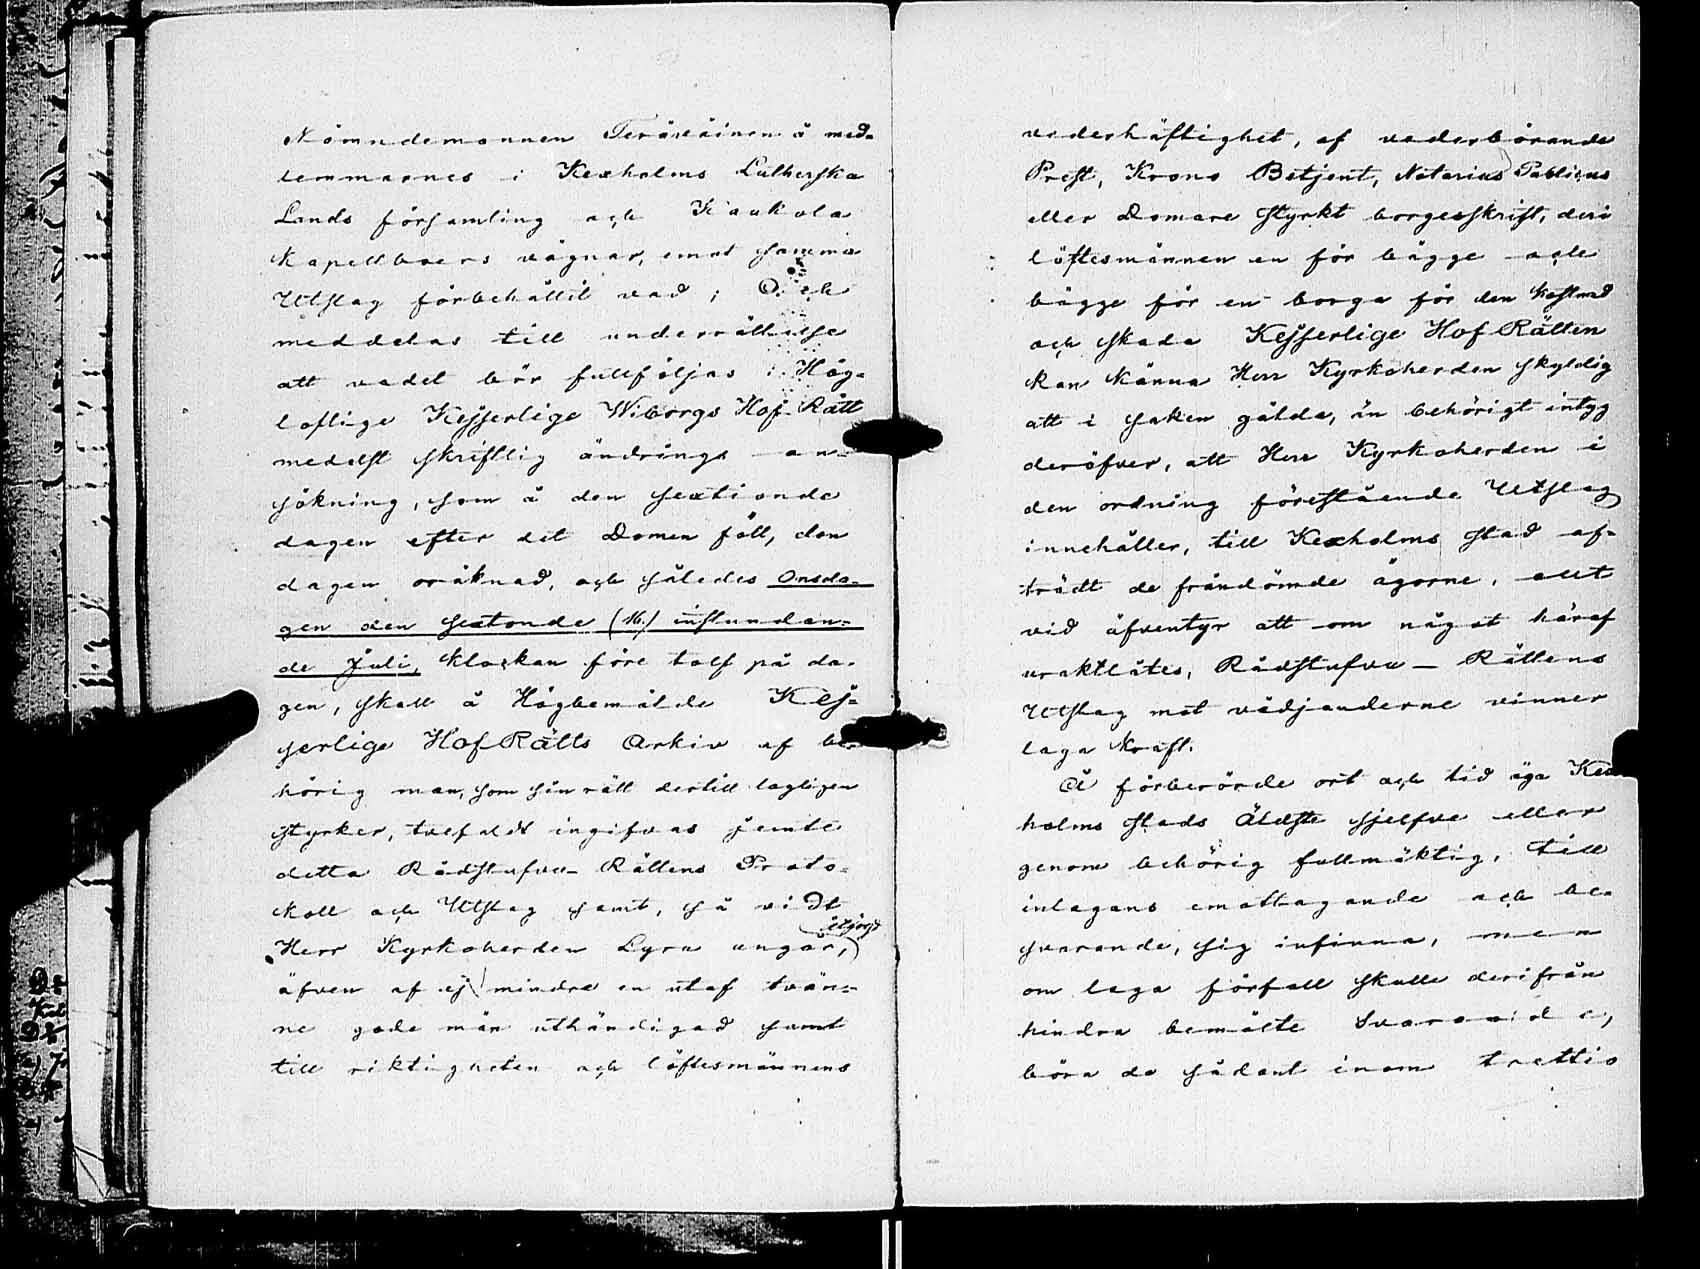 Nämndemannen Teräväinen å med-
lemmarnes i Kexholms Lutherska
Lands församling och Kaukola
Kapellboers vägnar, emot samma
Utslag förbehållit vad; Och
meddelas till underrättelse
att vadet bör fullföljas i Hög-
loflige Kejserlige Wiborgs Hof-Rätt
medelst skriftlig ändrings an-
sökning, som å den sextionde
dagen efter det Domen föll, den
dagen oräknad, och således Onsda-
gen den sextonde (16.) instundan-
de Juli, klockan före tolf på da-
gen, skall å Högbemälde Kej-
serlige Hof-Rätts Arkiv af be-
hörig man, som sin rätt dertill lagligen
styrker, tvefaldt ingifvas jemte
detta Rådstufvu-Rättens Proto-
koll och Utslag samt, så vidt
Herr Kyrkoherden Lyra angår,
äfven af ej mindre en utaf tvän-
ne gode män uthändigad samt
till riktigheten och löftesmännens
vederhäftighet, af vederbörande
Prest, Krono Betjent, Notarius Publicus
eller Domare styrkt borgesskrift, deri
löftesmännen en för bägge och
bägge för en borga för den kostnad
och skada Kejserlige Hof Rätten
kan känna Herr Kyrkoherden skyldig
att i saken gälda, än behörigt intyg
deröfver, att Herr Kyrkoherden i
den ordning förestående Utslag
innehåller, till Kexholms stad af-
trädt de fråndömde ägorne, allt
vid äfventyr att om något häraf
uraktlåtes, Rådstufvu-Rättens
Utslag mot vädjanderne vinner
laga kraft.
Å förberörde ort och tid äga Kex
holms stads Äldste sjelfve eller
genom behörig fullmäktig, till
inlagans emottagande och be-
svarande, sig infinna, men
om laga förfall skulle derifrån
hindra bemälte Svarande,
böra de sådant inom trettio